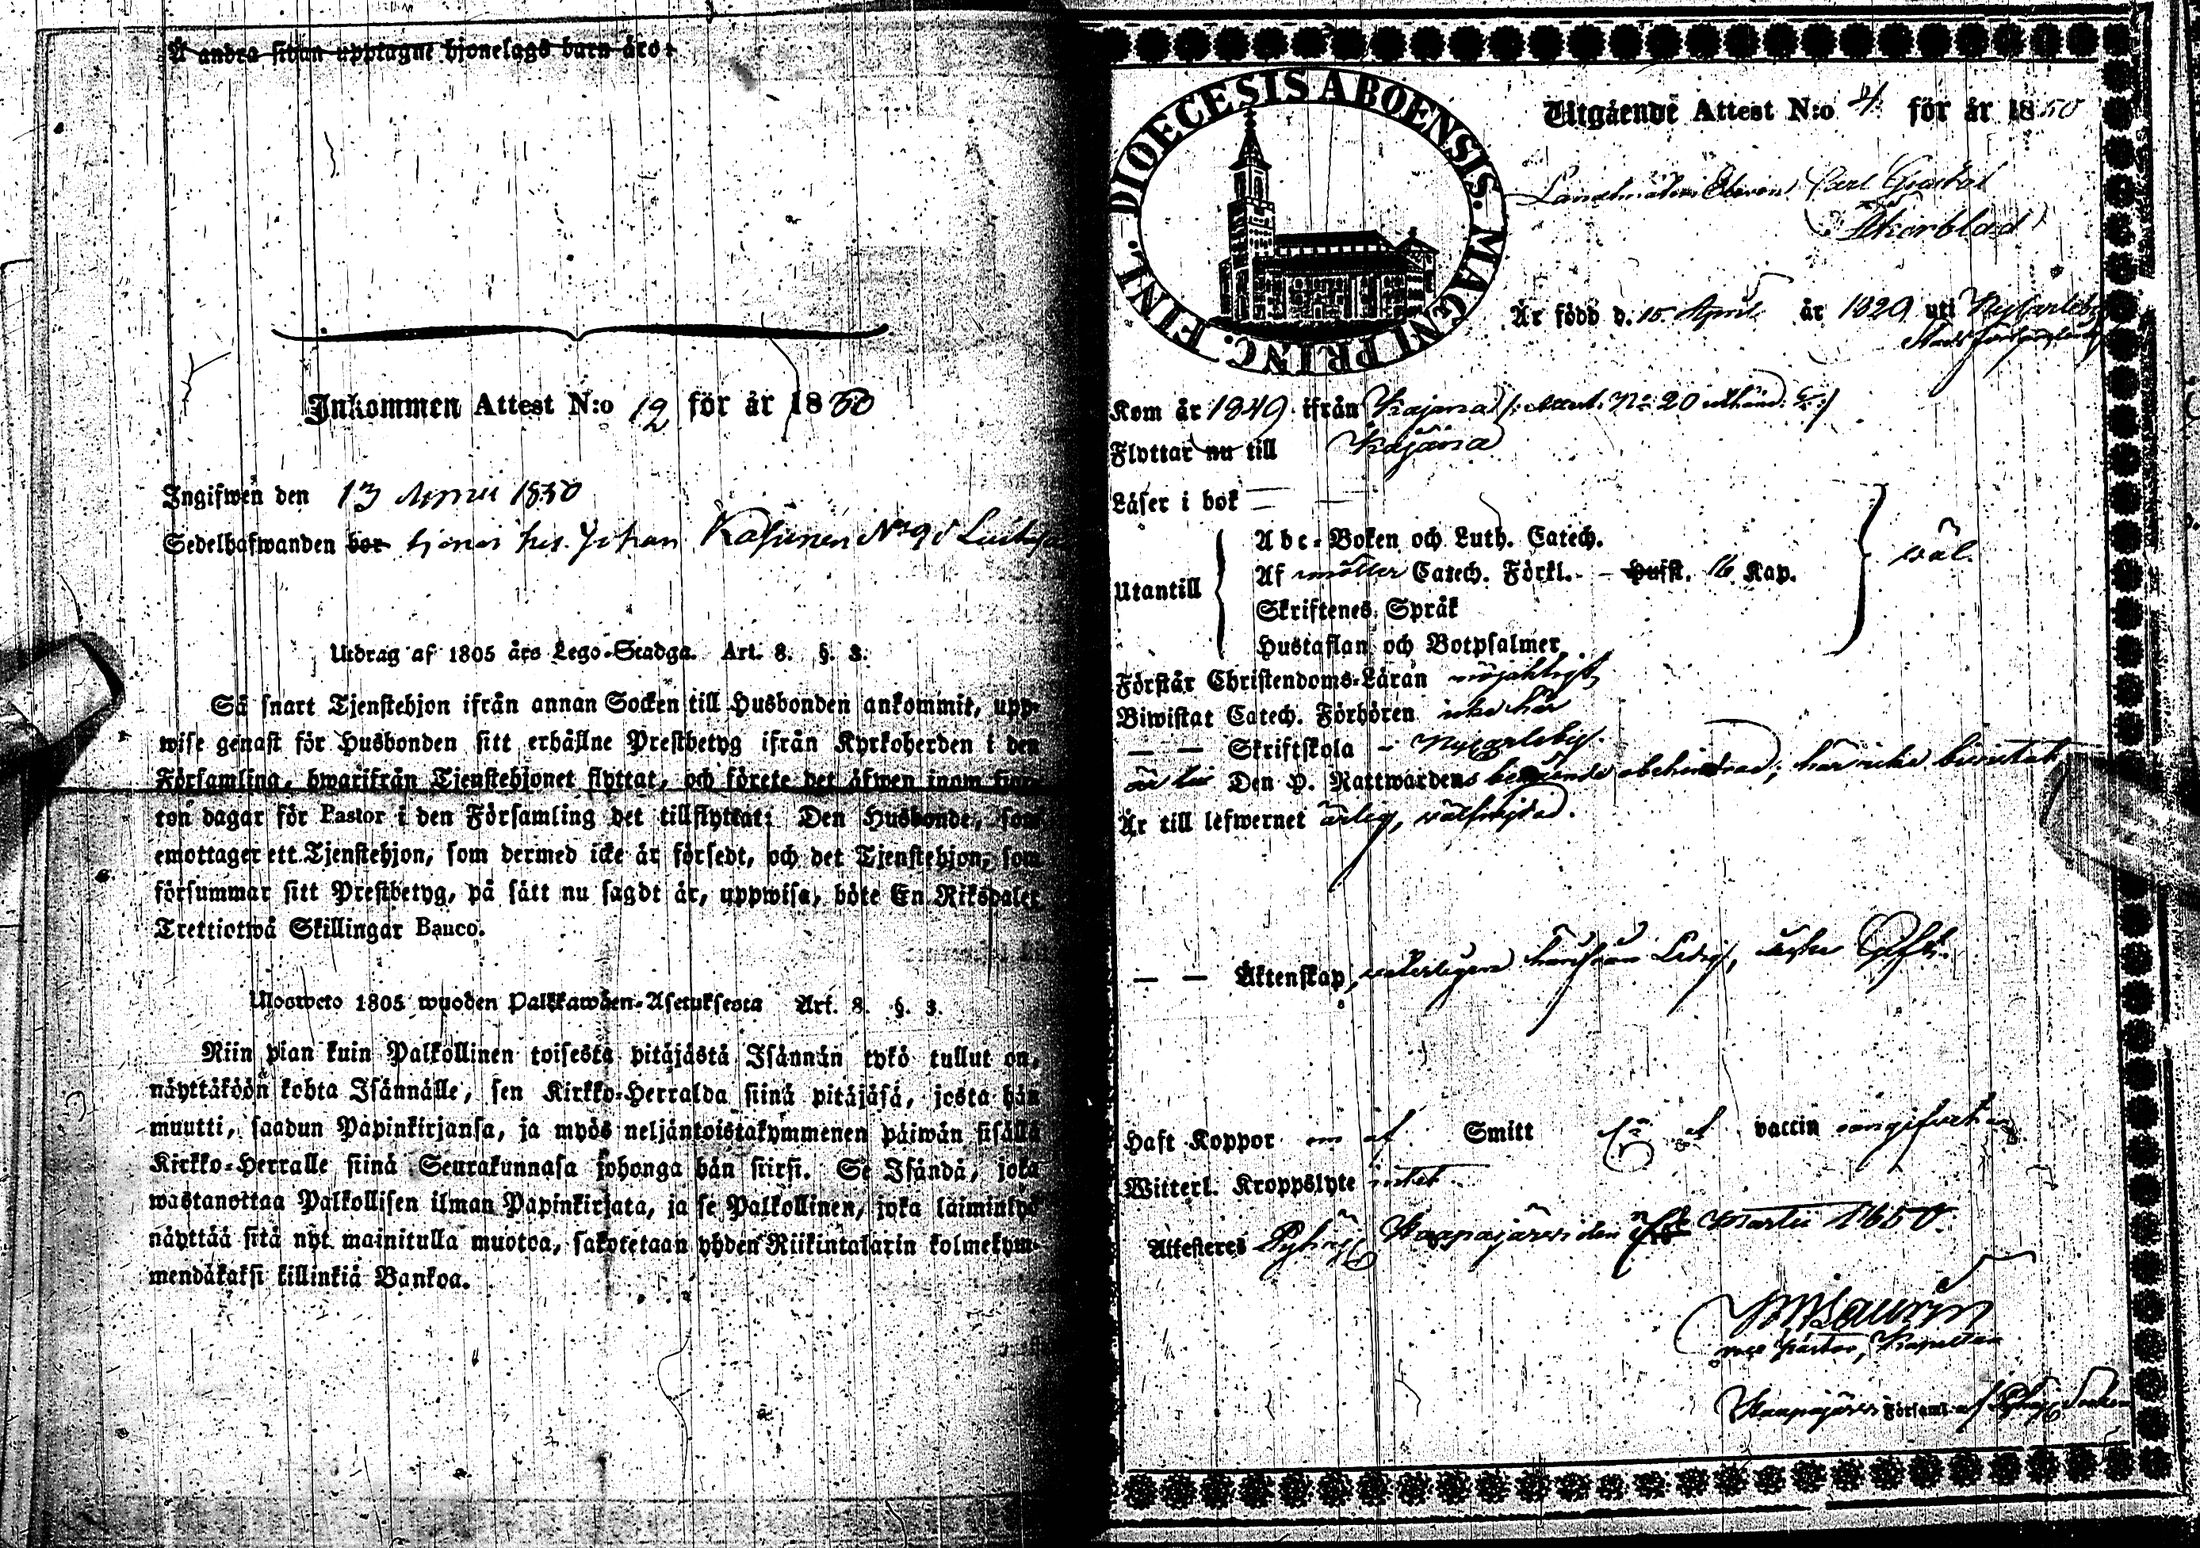 Å andra sidan upptagne hjonelags barn äro:
Inkommen Attest N:o 12 för år 1850
Ingifwen den 13 1850
Sedelhafwanden bor tjenar hos Johan
Utdrag af 1805 års Lego-Stadga. Art. 8. §. 3.
Så snart Tjenstehjon ifrån annan Socken till Husbonden ankommit, upp-
wise genast för Husbonden sitt erhållne Prestbetyg ifrån Kyrkoherden i den
Församling, hwarifrån Tjenstehjonet flyttat, och förete det äfwen inom fjor-
ton dagar för Pastor i den Församling det tillflyttat: Den Husbonde, som
emottager ett Tjenstehjon, som dermed icke är försedt, och det Tjenstehjon, som
försummar sitt Prestbetyg, på sätt nu sagdt är, uppwisa, böte En Riksdaler
Trettiotwå Skillingar Banco.
Ulosweto 1805 wuoden Palkkawäen-Asetuksesta Art. 8. §. 3.
Niin pian kuin Palkollinen toisesta pitäjästä Isännän tykö tullut on,
näyttäköön kohta Isännälle, sen Kirkko-Herralda siinä pitäjäsä, josta hän
muutti, saadun Papinkirjansa, ja myös neljäntoistakymmenen päiwän sisällä
Kirkko-Herralle siinä Seurakunnasa johonga hän siirsi. Se Isändä, joka
wastanottaa Palkollisen ilman Papinkirjata, ja se Palkollinen, joka laiminlyö
näyttää sitä nyt mainitulla muotoa, sakotetaan yhden Riikintalarin kolmekym-
mendäkaksi killinkiä Bankoa.
DIOECESIS ABOENSIS. MAGNI PRINC. FINL.
Utgående Attest N:o 4 för år 1850
Landtmäteri Eleven Carl Gustaf
Skarblad
Är född d. 15 April år 1829 uti Nycarleby
Kom år 1849 ifrån Kajana /: Attest N:o 20
Flyttar nu till Kajana
Läser i bok
Abc-Boken och Luth. Catech.
Utantill Af Möller Catech. Förkl. Hufst. 16 Kap. wäl.
Skriftenes Språk
Hustaflan och Botpsalmer
Förstår Christendoms-Läran nöjaktigt
Biwistat Catech. Förhören icke här
— — Skriftskola i Nycarleby.
är till Den H. Nattwardens begående obehindrad; här icke biwistat
Är till lefwernet ärlig, wälfrejdad.
— — Äktenskap,
Haft Koppor Smitt vaccin
Witterl. Kroppslyte intet
Attesteras Haapajärvi den Martii 1850.
vice Pastor, Kapellan
Haapajärvi Församl. af Socken